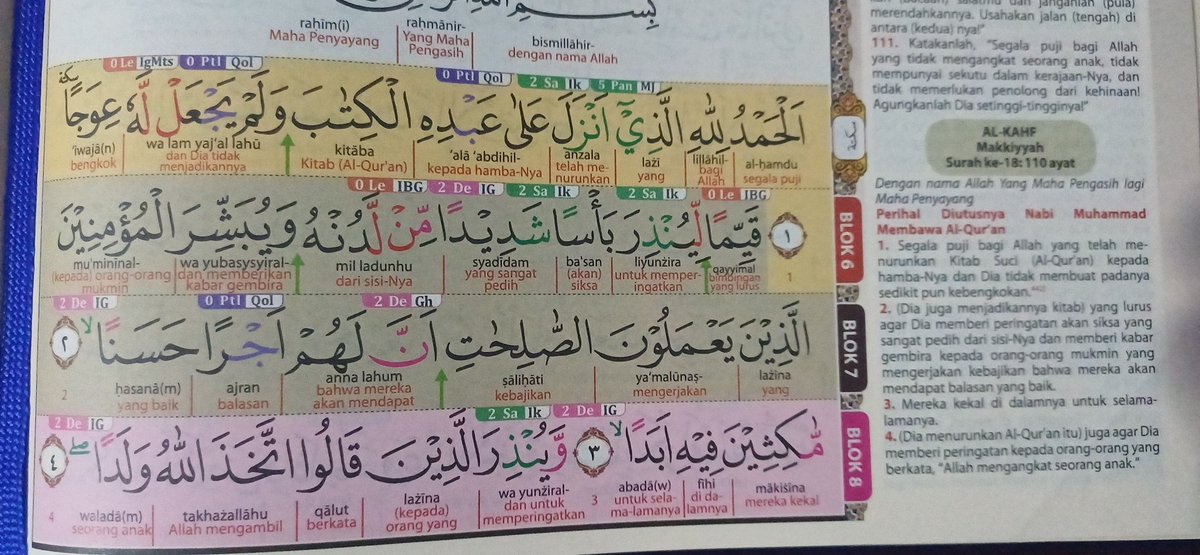 بِسْمِ اللّٰهِ
bismillāhir- rahmānir- rahīm(i)
dengan nama Allah Yang Maha Pengasih Maha Penyayang
5 Pan MJ 2 Sa Ik 0 Ptl Qol 0 Ptl Qol 0 Le IgMts
اَلْحَمْدُ لِلّٰهِ الَّذِيْٓ اَنْزَلَ عَلٰى عَبْدِهِ الْكِتٰبَ وَلَمْ يَجْعَلْ لَّهٗ عِوَجًا ۜ
al-ḥamdu lillāhil- lażī anzala 'alā 'abdihil- kitāba wa lam yaj'al lahū 'iwajā(n)
segala puji bagi Allah yang telah me-nurunkan kepada hamba-Nya Kitab (Al-Qur'an) dan Dia tidak menjadikannya bengkok
0 Le IBG 2 Sa Ik 2 Sa Ik 2 De IG 0 Le IBG
١ قَيِّمًا لِّيُنْذِرَ بَأْسًا شَدِيْدًا مِّنْ لَّدُنْهُ وَيُبَشِّرَ الْمُؤْمِنِيْنَ
1 qayyimal liyunżira ba'san syadīdam mil ladunhu wa yubasysyiral- mu'mininal-
bimbingan yang lurus untuk memper-ingatkan (akan) siksa yang sangat pedih dari sisi-Nya dan memberikan kabar gembira (kepada) orang-orang mukmin
2 De Gh 0 Ptl Qol 2 De IG
الَّذِيْنَ يَعْمَلُوْنَ الصّٰلِحٰتِ اَنَّ لَهُمْ اَجْرًا حَسَنًاۙ ٢
lażina ya'malūnaṣ- ṣāliḥāti anna lahum ajran ḥasanā(m) 2
yang mengerjakan kebajikan bahwa mereka akan mendapat balasan yang baik
2 De IG 2 Sa Ik 2 De IG
مّٰكِثِيْنَ فِيْهِ اَبَدًاۙ ٣ وَّيُنْذِرَ الَّذِيْنَ قَالُوا اتَّخَذَ اللّٰهُ وَلَدًاۖ ٤
mākiṡīna fīhi abadā(w) 3 wa yunżiral- lażīna qālut takhażallāhu waladā(m) 4
mereka kekal di da-lamnya untuk sela-ma-lamanya dan untuk memperingatkan (kepada) orang yang berkata Allah mengambil seorang anak
BLOK 6
BLOK 7
BLOK 8
مكية
merendahkannya. Usahakan jalan (tengah) di
antara (kedua) nya!"
111. Katakanlah, "Segala puji bagi Allah
yang tidak mengangkat seorang anak, tidak
mempunyai sekutu dalam kerajaan-Nya, dan
tidak memerlukan penolong dari kehinaan!
Agungkanlah Dia setinggi-tingginya!"
AL-KAHF
Makkiyyah
Surah ke-18: 110 ayat
Dengan nama Allah Yang Maha Pengasih lagi
Maha Penyayang
Perihal Diutusnya Nabi Muhammad
Membawa Al-Qur'an
1. Segala puji bagi Allah yang telah me-
nurunkan Kitab Suci (Al-Qur'an) kepada
hamba-Nya dan Dia tidak membuat padanya
sedikit pun kebengkokan.
2. (Dia juga menjadikannya kitab) yang lurus
agar Dia memberi peringatan akan siksa yang
sangat pedih dari sisi-Nya dan memberi kabar
gembira kepada orang-orang mukmin yang
mengerjakan kebajikan bahwa mereka akan
mendapat balasan yang baik.
3. Mereka kekal di dalamnya untuk selama-
lamanya.
4. (Dia menurunkan Al-Qur'an itu) juga agar Dia
memberi peringatan kepada orang-orang yang
berkata, "Allah mengangkat seorang anak."